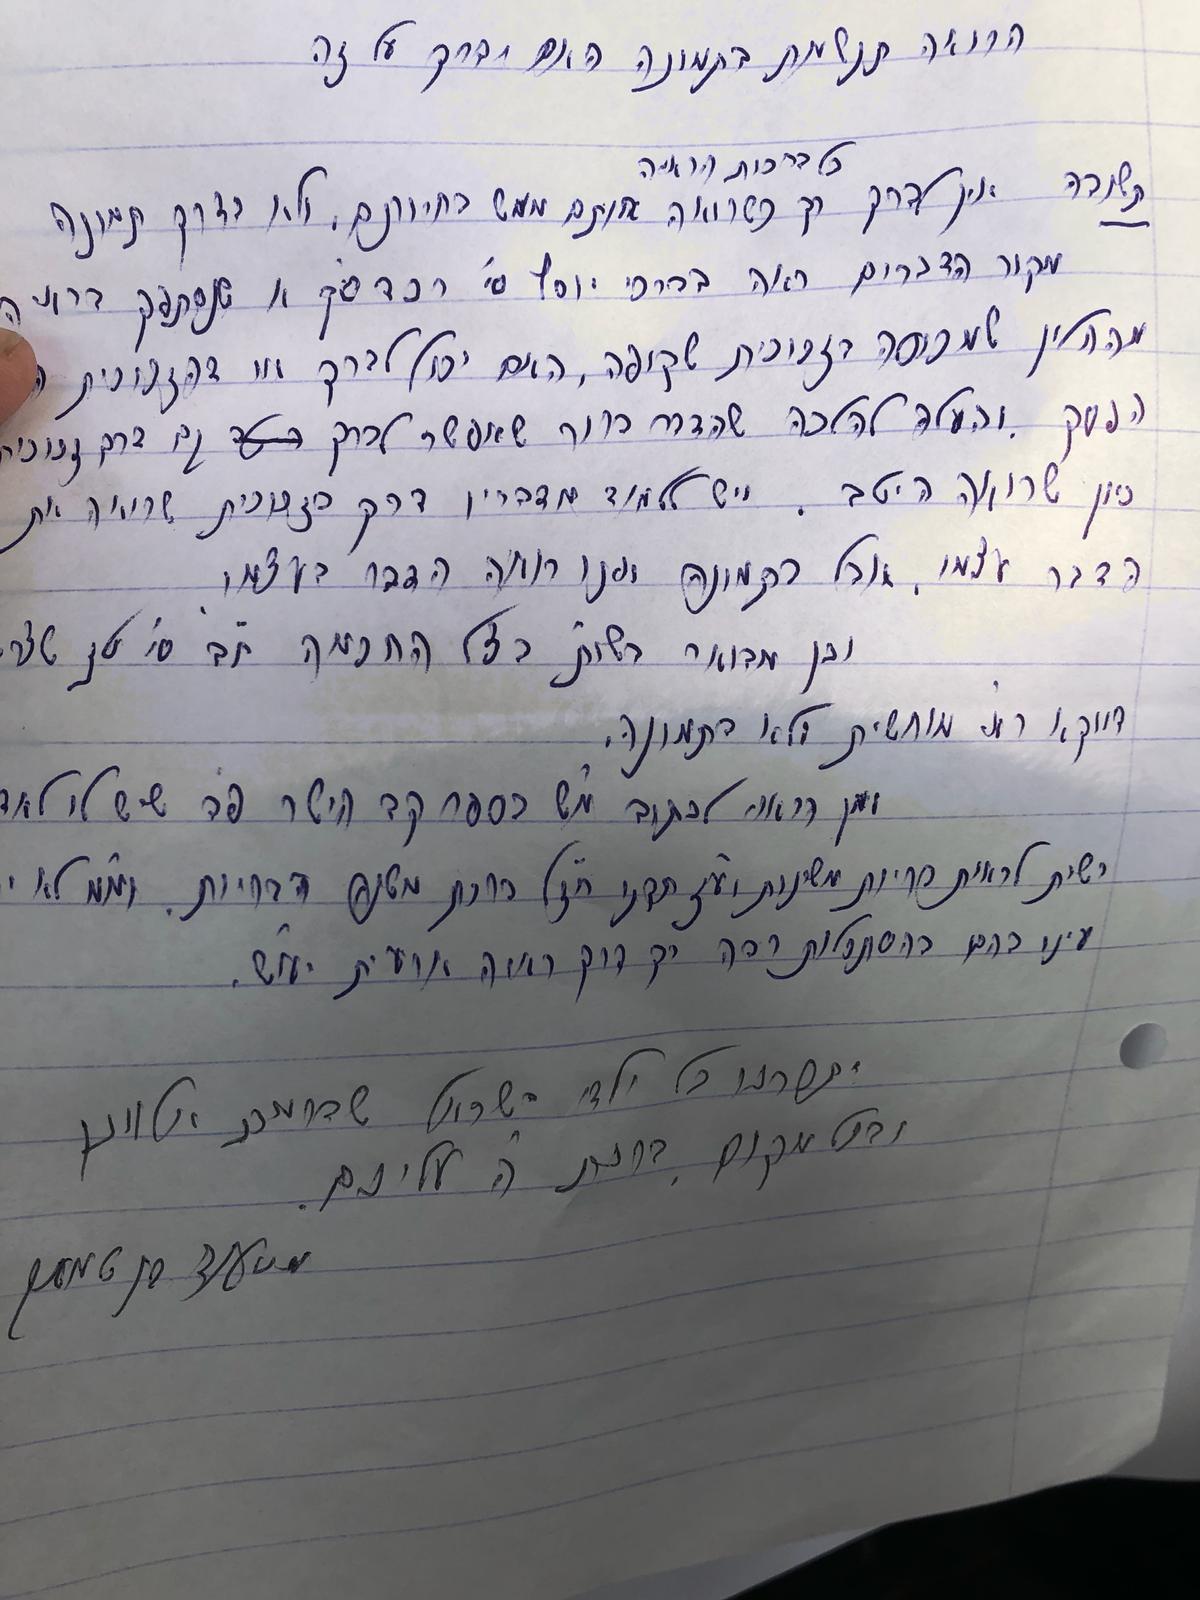 הרואה תנשמת בתמונה האם יברך על זה
כל ברכות הראיה
תשובה אין לברך רק כשרואה אותם ממש בחיותם, ולא בדרך תמונה
מקור הדברים ראה בברכי יוסף סי' רכד סק א שנסתפק בראי
מהחלון שמכוסה בזכוכית שקופה, האם יכול לברך או דהזכוכית
הפסק. והעלה להלכה שהדבר ברור שאפשר לברך גם דרך זכוכית
כיון שרואה היטב. ויש ללמוד מדבריו דרק בזכוכית שרואה את
הדבר עצמו, אבל בתמונה אינו רואה הדבר בעצמו
וכן מבואר בשו"ת בצל החכמה ח"ב סי'
דווקא ראי' מוחשית ולא בתמונה.
ומן הראוי לכתוב מ"ש בספר קב הישר פ"ב שיש לו לאדם
רשות לראות בריות משונות וע"ז תקנו חז"ל ברכת משנה הבריות. ומ"מ לא
עינו בהם בהסתכלות רבה רק דרך ראיה ארעית יעו"ש.
כל ילדי ישראל
ובכל מקום. ברכת ה' עליכם.